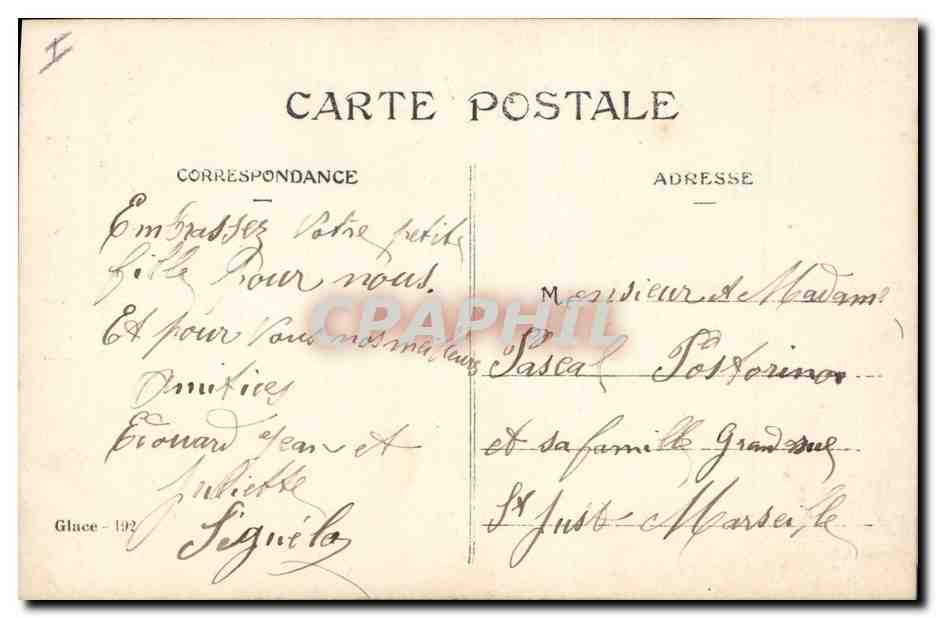 I
CARTE POSTALE
CORRESPONDANCE
Embrassez Votre petite
fille Pour nous.
Et pour Vous nos meilleurs
Amitiees
Edouard Jean et
Juliette
Glace - 192
ADRESSE
Monsieur et Madame
Pascal Postorino
et sa famille Grand rue
St Just Marseille
CPAPHIL